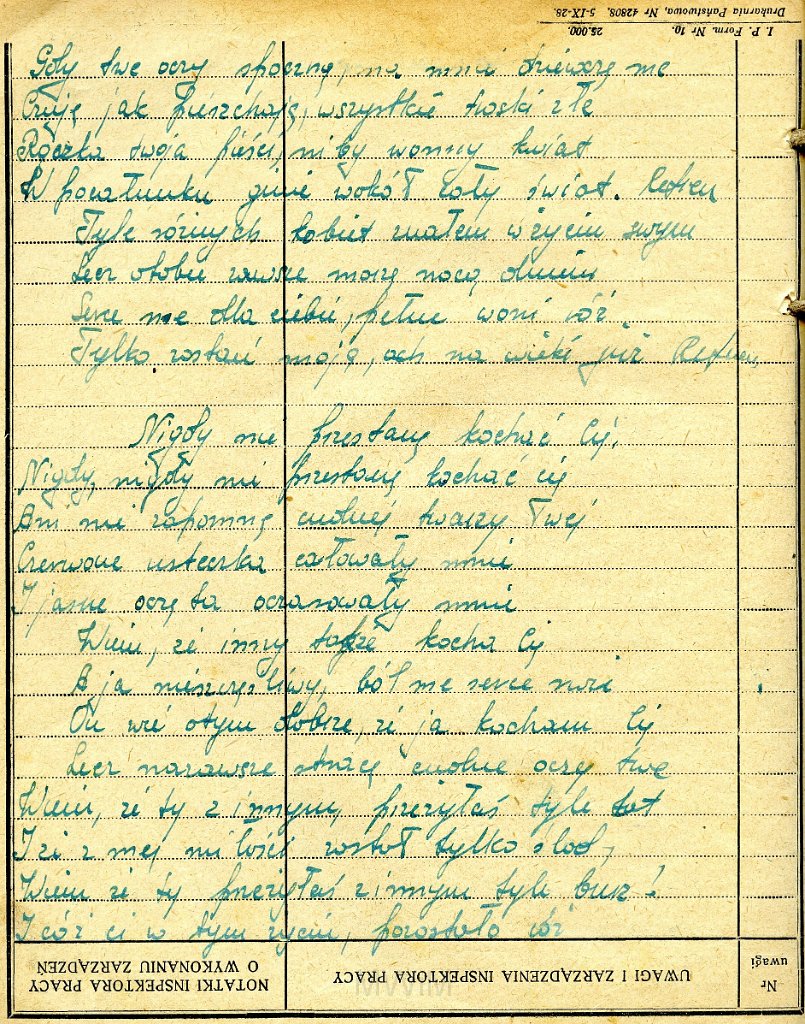 I. P. Form. Nr 10. 25.000.
Drukarnia Państwowa, Nr 42808. 5-IX-28.
Gdy twe oczy spoczną, na mnie dziewczę me
Czuję jak pieszchają, wszystkie troski złe
Rączka twoja pieści, niby wonny kwiat
W pocałunku ginie wokół cały świat. Refren
Tyle różnych kobiet znałem w życiu swym
Lecz o tobie zawsze marzę nocą dniem
Serce me dla ciebie, pełne woni róż
Tylko zostań moją, ach na wieki już Refren
Nigdy nie przestanę kochać Cię.
Nigdy, nigdy nie przestanę kochać cię
Ani nie zapomnę cudnej twarzy twej
Czerwone usteczka całowały mnie
I jasne oczęta oczarowały mnie
Wiem, że inny także kocha Cię
A ja nieszczęśliwy, ból me serce rwie
On wie o tym dobrze, że ja kocham Cię
Lecz nazawsze stracę cudne oczy twe
Wiem, że ty z innym, przeżyłaś tyle lat
I że z mej miłości został tylko ślad,
Wiem że ty przeżyłaś z innym tyle burz!
I cóż ci w tym życiu, pozostało cóż
Nr uwagi
UWAGI I ZARZĄDZENIA INSPEKTORA PRACY
NOTATKI INSPEKTORA PRACY O WYKONANIU ZARZĄDZEŃ
MWIM